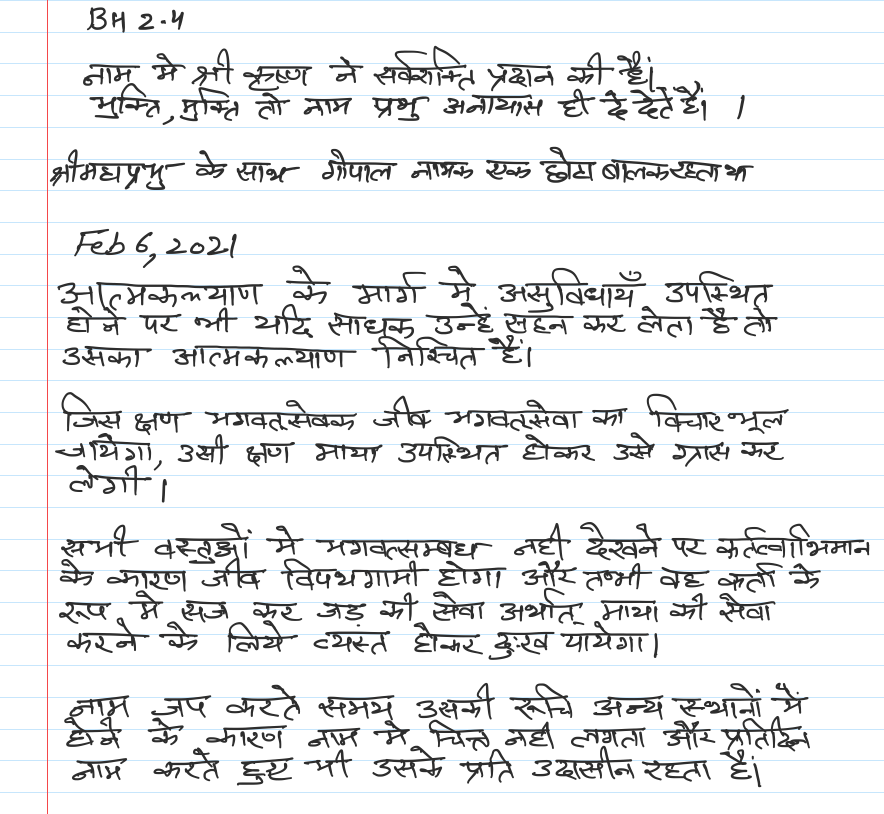 BH 2.4
नाम मे श्री कृष्ण ने सर्वशक्ति प्रदान की हैं।
भुक्ति, मुक्ति तो नाम प्रभु अनायास ही दे देते हैं। ।
श्रीमहाप्रभु के साथ गोपाल नामक एक छोटा बालक रहता था
Feb 6, 2021
आत्मकल्याण के मार्ग मे असुविधायँ उपस्थित
होने पर भी यदि साधक उन्हें सहन कर लेता है तो
उसका आत्मकल्याण निश्चित हैं।
जिस क्षण भगवत्सेवक जीव भगवत्सेवा का विचार भूल
जायेगा, उसी क्षण माया उपस्थित होकर उसे ग्रास कर
लेगी।
सभी वस्तुओं मे भगवत्सम्बध नही देखने पर कर्तत्वाभिमान
के कारण जीव विपथगामी होगा और तभी वह कर्ता के
रूप मे सज कर जड़ की सेवा अर्थात् माया की सेवा
करने के लिये व्यस्त होकर दुःख पायेगा।
नाम जप करते समय उसकी रूचि अन्य स्थानों में
होने के कारण नाम मे चित्त नही लगता और प्रतिदिन
नाम करते हुए भी उसके प्रति उदासीन रहता हैं।